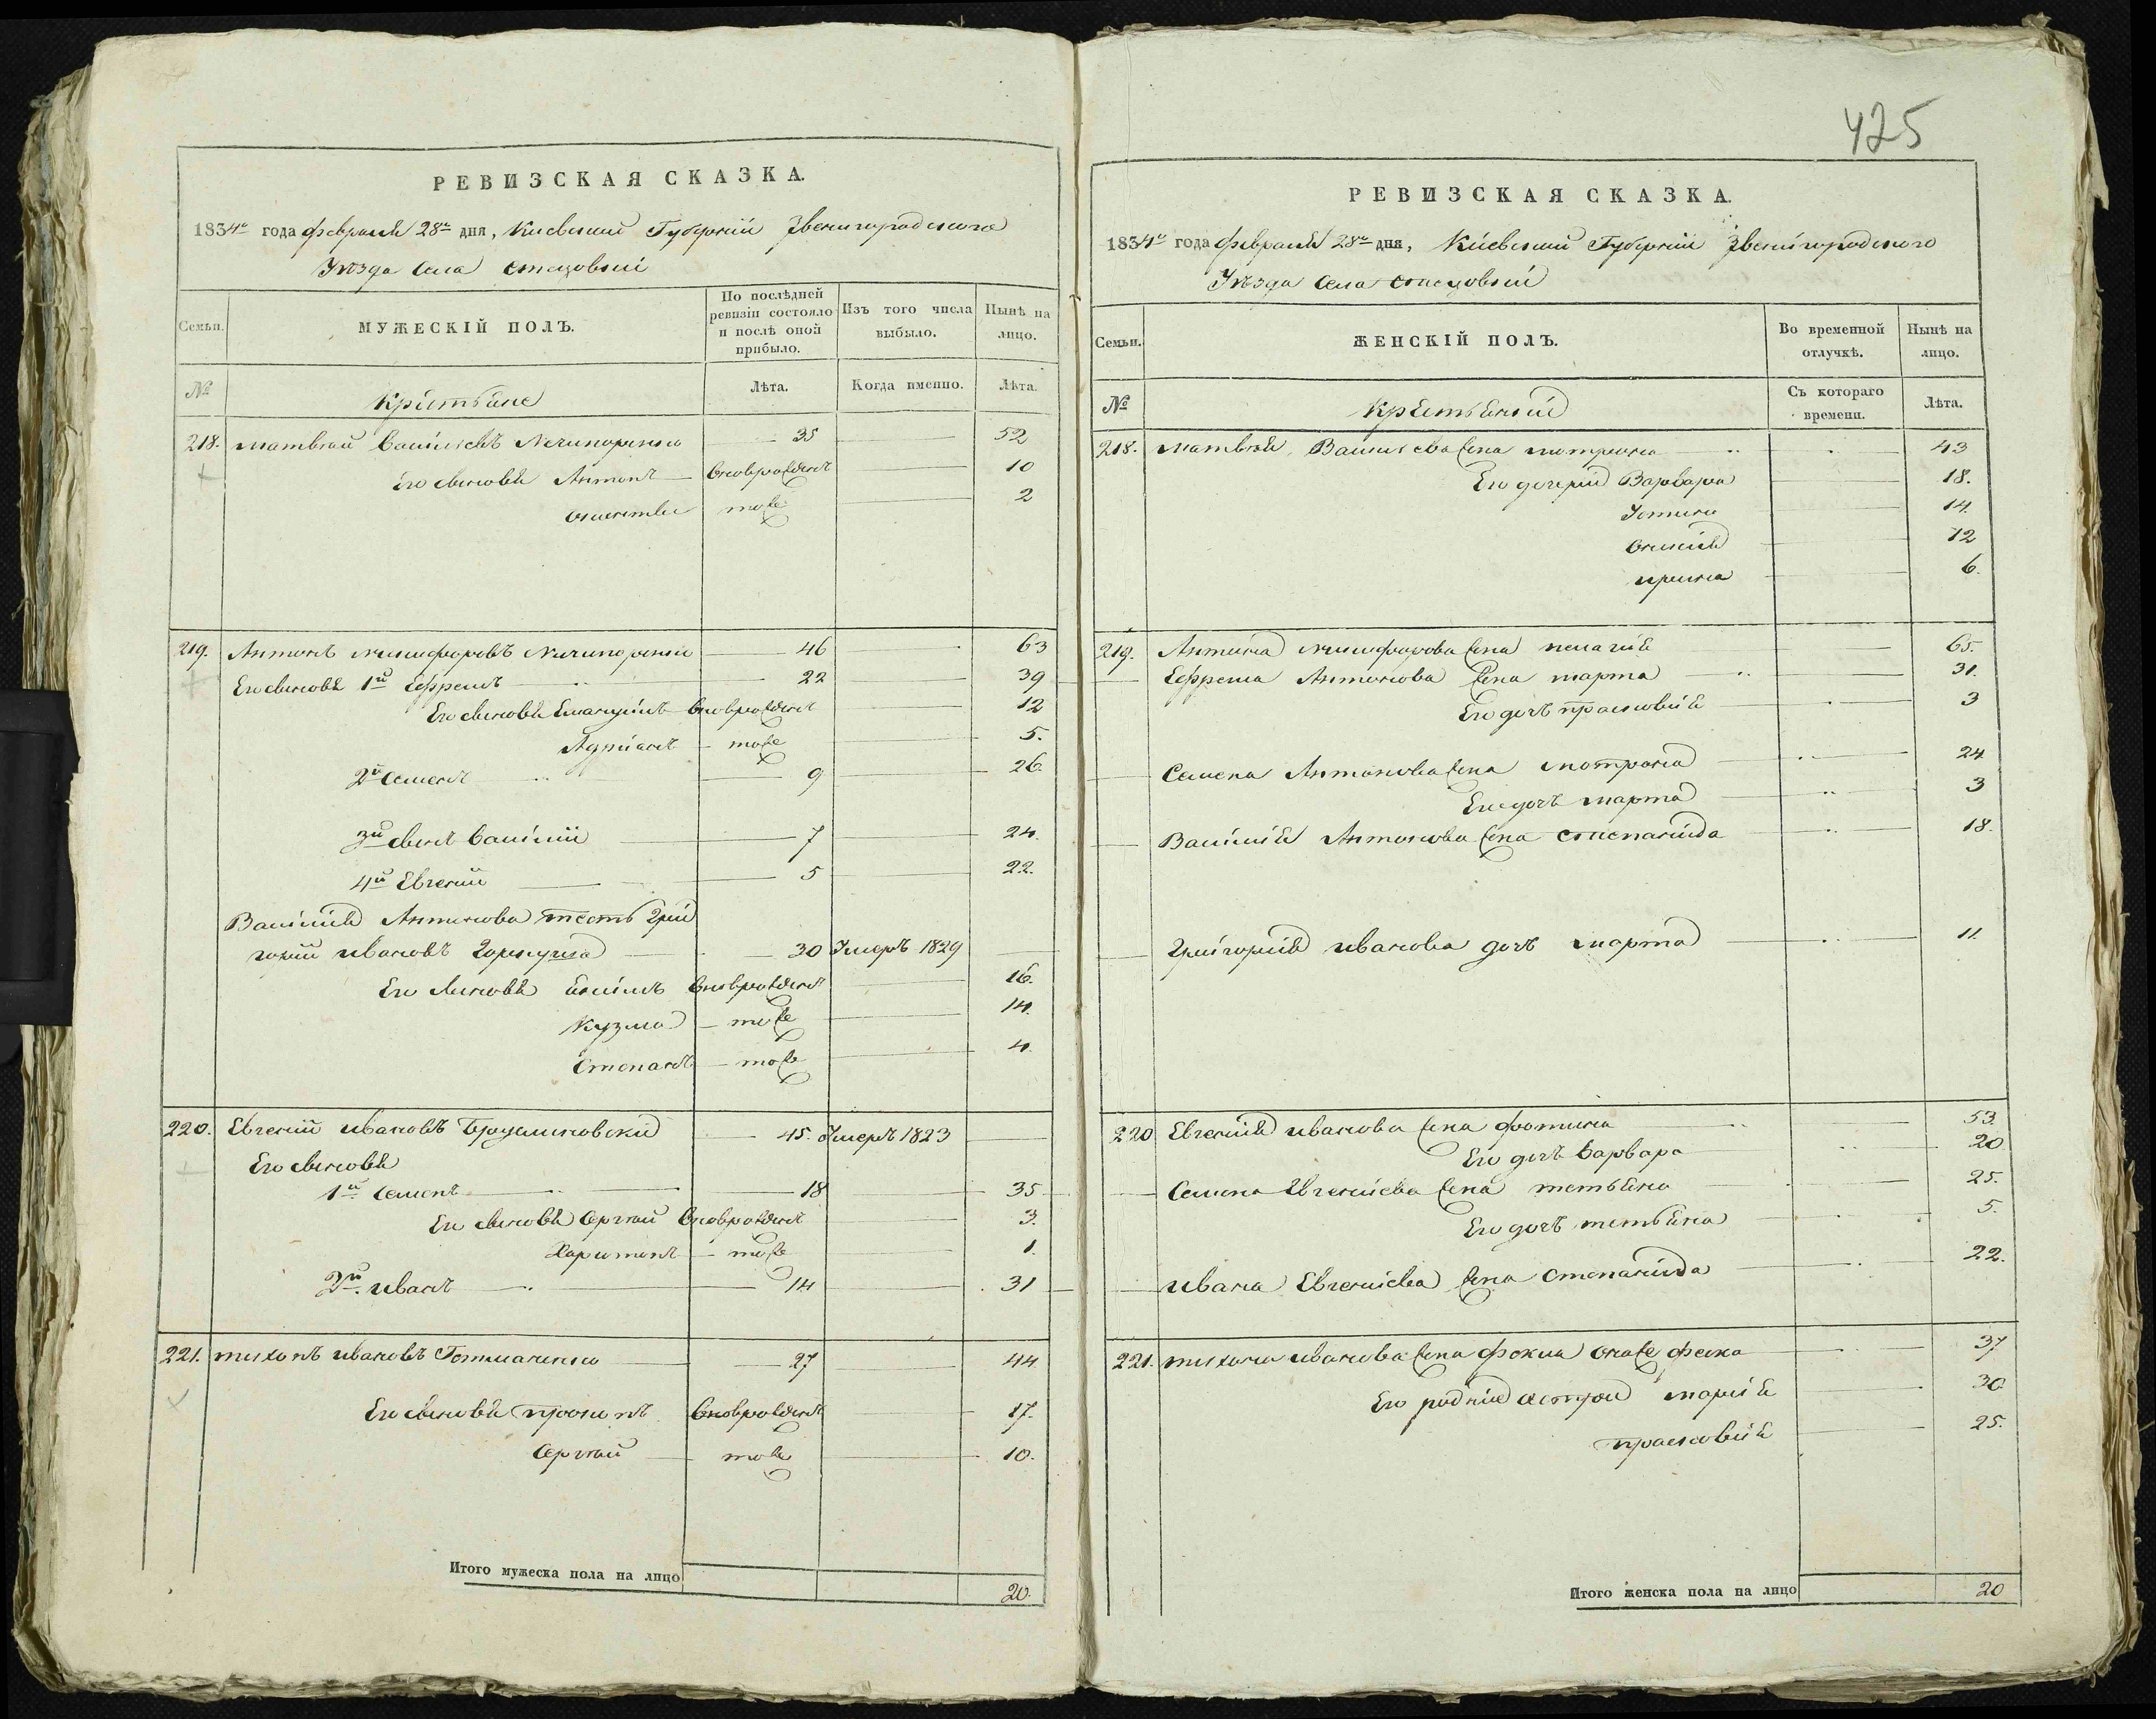 425
РЕВИЗСКАЯ СКАЗКА.
1834го года февраля 28го дня, Киевской Губернии Звенигородского
Уезда Села Стецовки
Семьи.
МУЖЕСКІЙ ПОЛЪ.
По послѣдней ревизіи состояло и послѣ оной прибыло.
Изъ того числа выбыло.
Нынѣ на лицо.
№
Крестьяне
Лѣта.
Когда именно.
Лѣта.
218. Матвей Васильевъ Ничипоренко 35 52
Его сыновья Антонъ Вноврожденъ 10
тоже 2
219. Антонъ Никифоровъ Ничипоренко 46 63
Его сыновья 1й Ефремъ 22 39
Его сыновья Вноврожденъ 12
Адріанъ тоже 5.
2й Семенъ 9 26.
3й сынъ Василій 7 24.
4й Евгений 5 22.
Василия Антонова тесть Гри
горий Ивановъ 30 Умеръ 1829
Его сыновья Вноврожденъ 16.
Кузма тоже 14.
Степанъ тоже 4.
220. Евгений Ивановъ 45. Умеръ 1823
Его сыновья
1й Семенъ 18 35
Его сыновья Сергей Вноврожденъ 3.
Харитонъ тоже 1.
2й Иванъ 14 31
221. Тихонъ Ивановъ 27 44
Его сыновья Прокопъ Вноврожденъ 17.
Сергей тоже 10.
Итого мужеска пола на лицо 20.
РЕВИЗСКАЯ СКАЗКА.
1834го года февраля 28го дня, Киевской Губернии Звенигородского
Уезда Села Стецовки
Семьи.
ЖЕНСКІЙ ПОЛЪ.
Во временной отлучкѣ.
Нынѣ на лицо.
№
Крестьянки
Съ котораго времени.
Лѣта.
218. Матвея Васильева жена Мотрона 43
Его дочери Варвара 18.
Устина 14.
12
Ирина 6.
219. Антона Никифорова жена Пелагия 65.
Ефрема Антонова жена Марта 31.
Его дочь Прасковия 3
Семена Антонова жена Мотрона 24
Его дочь Марта 3
Василия Антонова жена Степанида 18.
Григория Иванова дочь Марта 11.
220 Евгения Иванова жена Фотина 53.
Его дочь Варвара 20
Семена Евгениева жена Татьяна 25.
Его дочь Татьяна 5.
Ивана Евгениева жена Степанида 22.
221. Тихона Иванова жена Фекла 37
Его родные сестры Мария 30
Прасковия 25.
Итого женска пола на лицо 20